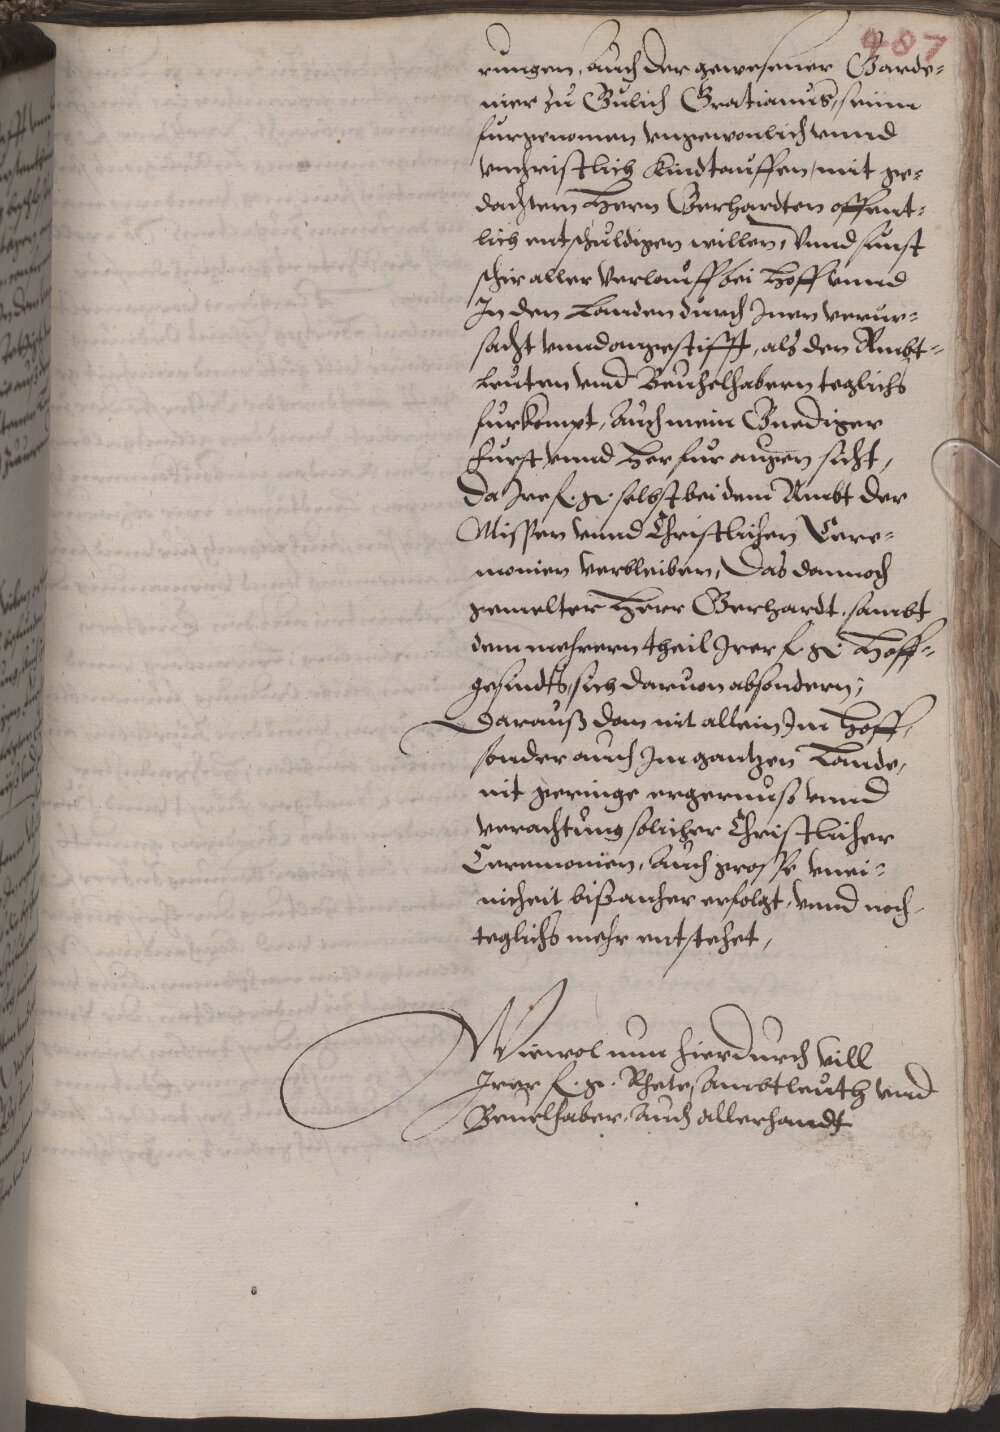 487
rungen, Auch der gewesener Garde-
nier zu Gulich Gratianus, seine
furgenomen ungewonlich unnd
unchristlich Kindtauffen, mit ge-
dachtem Hern Gerhardten offent-
lich entschuldigen willen, Unnd sunst
schir aller Verlouff bei Hoff unnd
In den Landen durch Inen verur-
sacht unnd angestifft, als den Ambt-
leuten und Beuhelhabern teglichs
furkompt, Auch mein Gnediger
Furst unnd Her fur augen sicht,
Da Ire f. g. selbst bei dem Ambt der
Missen unnd Christlichen Cere-
monien verbleiben, Das dannoch
gemelter Herr Gerhardt, sambt
dem mehrern theil Irer f. g. Hoff-
gesindts, sich daruon absondern,
Darauß dan nit allein Im Hoff,
sonder auch Im gantzen Lande,
nit geringe ergernuß unnd
verachtung solicher Christlicher
Ceremonien, Auch grosse unei-
nicheit biß anher erfolgt, unnd noch
teglichs mehr entstehet,
Wiewol nun hierdurch vill
Irer f. g. Rhete Ambtleuth und
Beuelhaber, Auch allerhandt